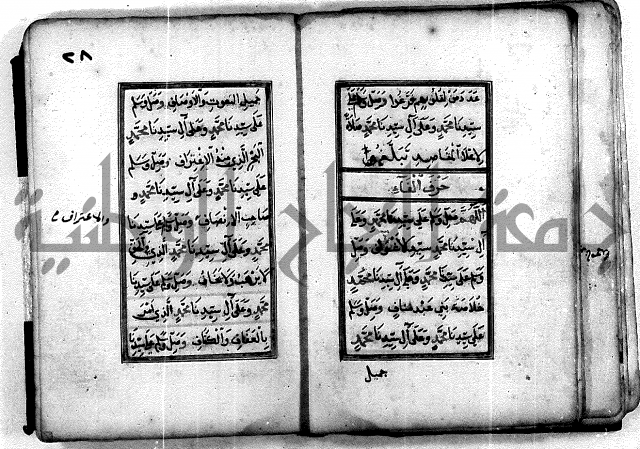 عدد من لقلق بهم فزعوا وصل وسلم
سيدنا محمد وعلى آل سيدنا محمد صلاة
لاعلا المقاصد تبلغهم
حرف الفاء
اللهم صل وسلم على سيدنا محمد وعلى
آل سيدنا محمد سيد الاشراف وصل
وسلم على سيدنا محمد وعلى آل سيدنا محمد
خلاصة بني عبد مناف وصل وسلم
على سيدنا محمد وعلى آل سيدنا محمد
جميل
٢٨
جميل النعوت والاوصاف وصل وسلم
على سيدنا محمد وعلى آل سيدنا محمد
البحر الذي منه الاغتراف وصل وسلم
على سيدنا محمد وعلى آل سيدنا محمد و
صاحب الانصاف وصل وسلم على سيدنا
والاعتراف
محمد وعلى آل سيدنا محمد الذي
لا يرهب ولا يخاف وصل وسلم على سيدنا
محمد وعلى آل سيدنا محمد الذي
بالعفاف والكفاف وصل وسلم على سيدنا
جامعة النجاح الوطنية